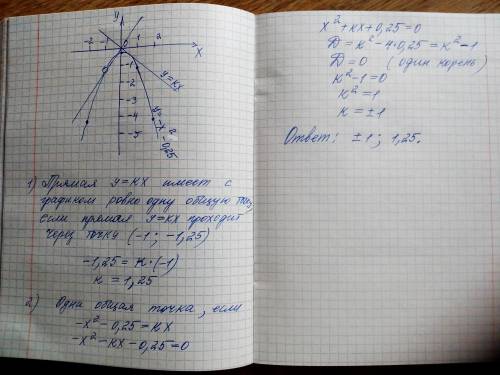 y
-2 -1 0 1 2 x
-1
-2
-3
-4
-5
y=kx
y=-x²-0,25
1) Прямая y=kx имеет с
графиком ровно одну общую точку,
если прямая y=kx проходит
через точку (-1; -1,25)
-1,25 = k·(-1)
k = 1,25
2) Одна общая точка, если
-x²-0,25=kx
-x²-kx-0,25=0
x²+kx+0,25=0
Д=k²-4·0,25=k²-1
Д=0 (один корень)
k²-1=0
k²=1
k=±1
Ответ: ±1; 1,25.